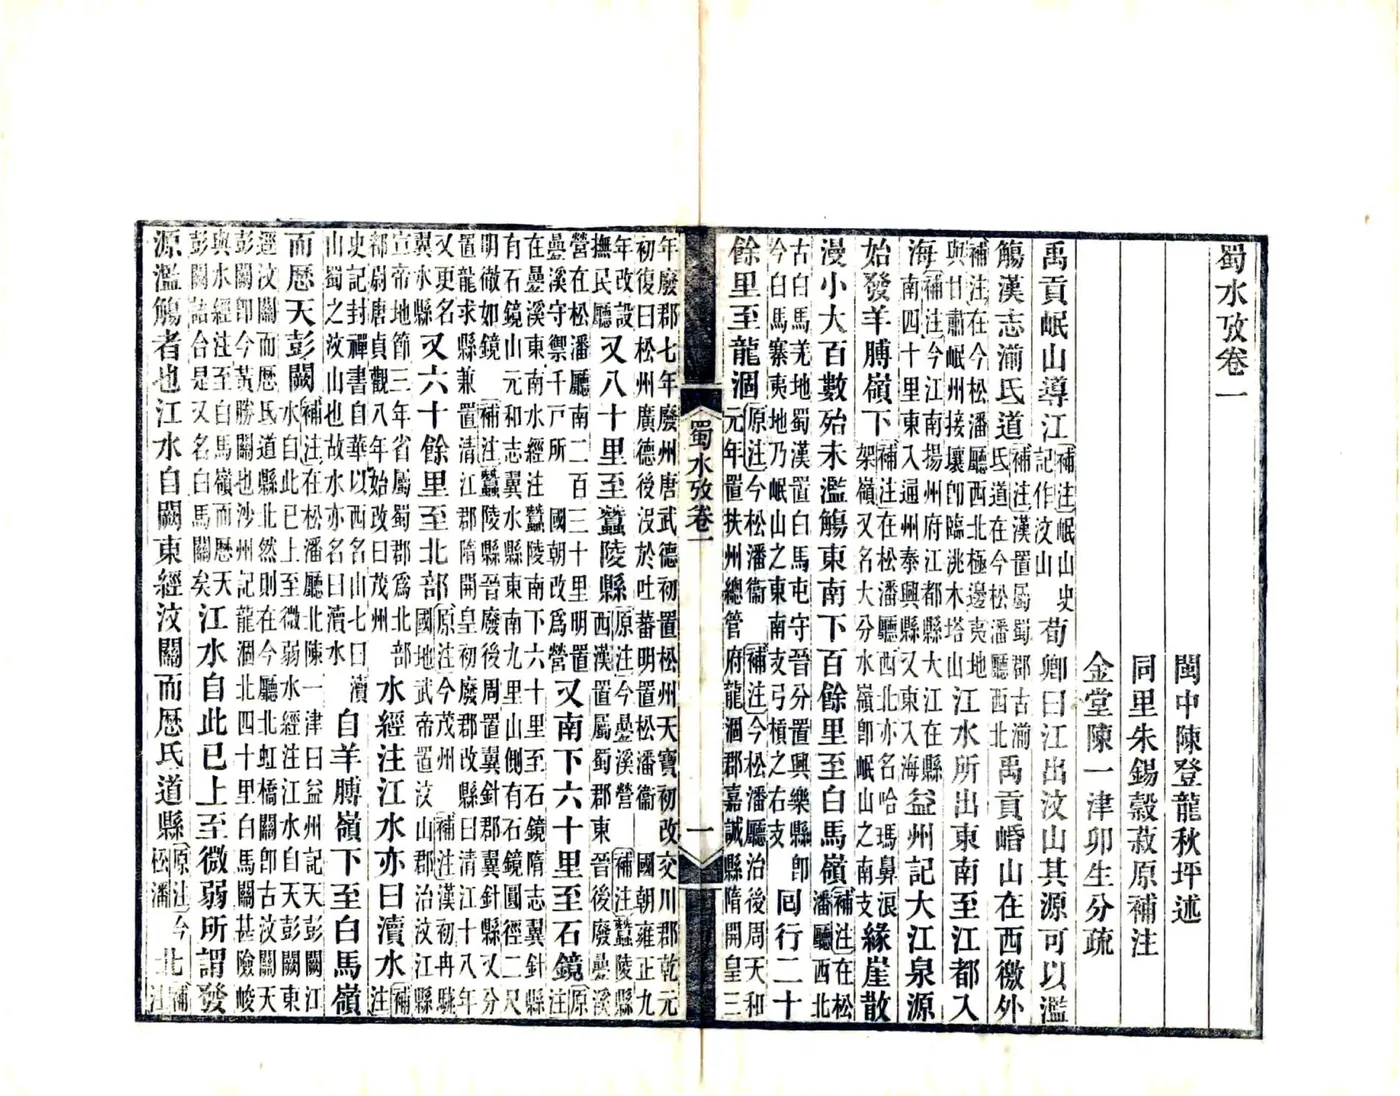 蜀水攷卷一
閩中陳登龍秋坪述
同里朱錫穀菽原補注
金堂陳一津卯生分疏
禹貢岷山導江補注岷山史記作汶山荀卿曰江出汶山其源可以濫
觴漢志湔氐道補注漢置屬蜀郡古湔氐道在今松潘廳西北禹貢崏山在西徼外
補注在今松潘廳西北極邊夷地與甘肅岷州接壤卽臨洮木塔山江水所出東南至江都入
海補注今江南揚州府江都縣大江在縣南四十里東入通州泰興縣又東入海益州記大江泉源
始發羊膊嶺下補注在松潘廳西北亦名哈瑪鼻浪架嶺又名大分水嶺卽岷山之南支緣崖散
漫小大百數殆未濫觴東南下百餘里至白馬嶺補注在松潘廳西北
古白馬羌地蜀漢置白馬屯守晉分置興樂縣卽今白馬寨夷地乃岷山之東南支弓槓之右支同行二十
餘里至龍涸原注今松潘衞 補注今松潘廳治後周天和元年置扶州總管府龍涸郡嘉誠縣隋開皇三
蜀水攷卷一 一
年廢郡七年廢州唐武德初置松州天寶初改交川郡乾元初復曰松州廣德後沒於吐蕃明置松潘衞 國朝雍正九
年改設撫民廳又八十里至蠶陵縣原注今疊溪營 補注蠶陵縣西漢置屬蜀郡東晉後廢疊溪
營在松潘廳南二百三十里明置疊溪守禦千戶所 國朝改爲營又南下六十里至石鏡原注
在疊溪東南水經注蠶陵南下六十里至石鏡隋志翼針縣有石鏡山元和志翼水縣東南九里山側有石鏡圓徑二尺
明徹如鏡 補注蠶陵縣晉廢後周置翼針郡翼針縣又分置龍求縣兼置清江郡隋開皇初廢郡改縣曰清江十八年
又更名翼水縣又六十餘里至北部原注今茂州 補注漢初冉駹國地武帝置汶山郡治汶江縣
宣帝地節三年省屬蜀郡爲北部都尉唐貞觀八年始改曰茂州水經注江水亦曰瀆水補注
史記封禪書自華以西名山七曰瀆山蜀之汶山也故水亦名曰瀆水自羊膊嶺下至白馬嶺
而歷天彭闕補注在松潘廳北陳一津曰益州記天彭闕江水自此已上至微弱水經注江水自天彭闕東
逕汶關而歷氐道縣北然則在今廳北虹橋關卽古汶關天彭闕卽今黃勝關也沙州記龍涸北四十里白馬關甚險峻
與水經注至白馬嶺而歷天彭闕語合是又名白馬關矣江水自此已上至微弱所謂發
源濫觴者也江水自闕東經汶關而歷氐道縣原注今松潘北補注